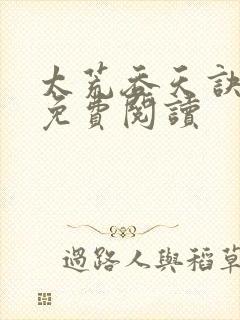 太荒吞天訣
免費閱讀
過路人與稻草